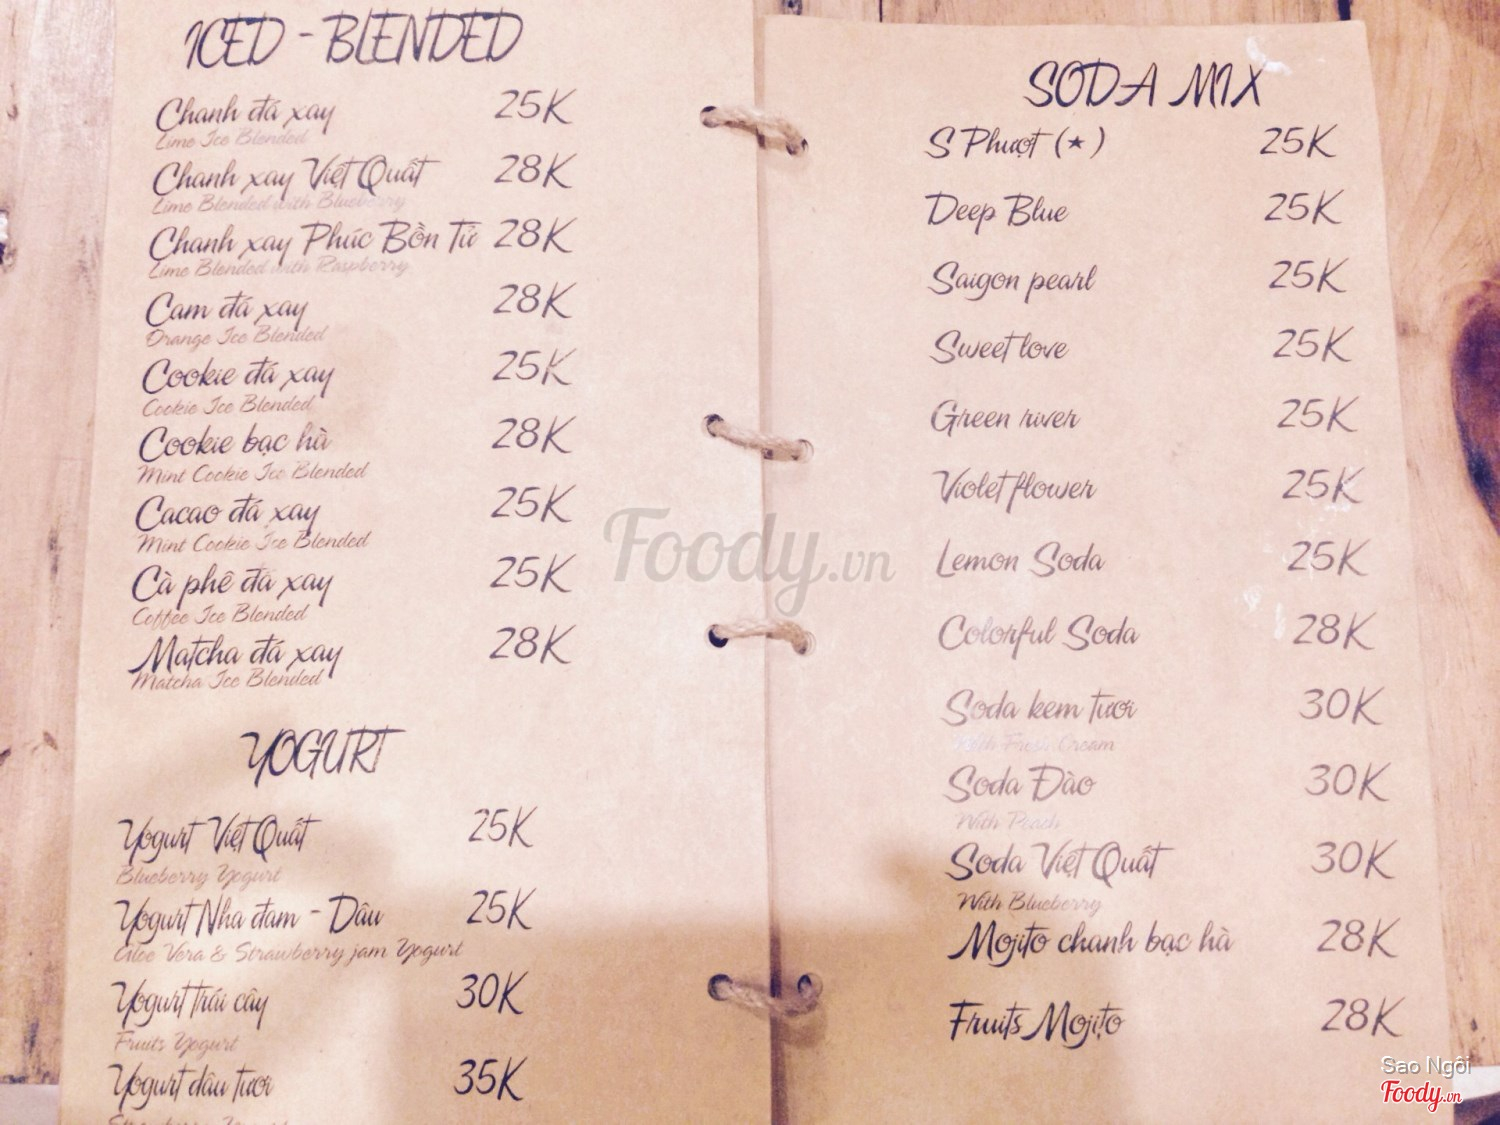 ICED - BLENDED
Chanh đá xay 25K
Lime Ice Blended
Chanh xay Việt Quất 28K
Lime Blended with Blueberry
Chanh xay Phúc Bồn Tử 28K
Lime Blended with Raspberry
Cam đá xay 28K
Orange Ice Blended
Cookie đá xay 25K
Cookie Ice Blended
Cookie bạc hà 28K
Mint Cookie Ice Blended
Cacao đá xay 25K
Mint Cookie Ice Blended
Cà phê đá xay 25K
Coffee Ice Blended
Matcha đá xay 28K
Matcha Ice Blended
YOGURT
Yogurt Việt Quất 25K
Blueberry Yogurt
Yogurt Nha đam - Dâu 25K
Aloe Vera & Strawberry jam Yogurt
Yogurt trái cây 30K
Fruits Yogurt
Yogurt dâu tươi 35K
SODA MIX
S Phượt (★) 25K
Deep Blue 25K
Saigon pearl 25K
Sweet love 25K
Green river 25K
Violet flower 25K
Lemon Soda 25K
Colorful Soda 28K
Soda kem tươi 30K
With Fresh Cream
Soda Đào 30K
With Peach
Soda Việt Quất 30K
With Blueberry
Mojito chanh bạc hà 28K
Fruits Mojito 28K
Foody.vn
Sao Ngôi
Foody.vn